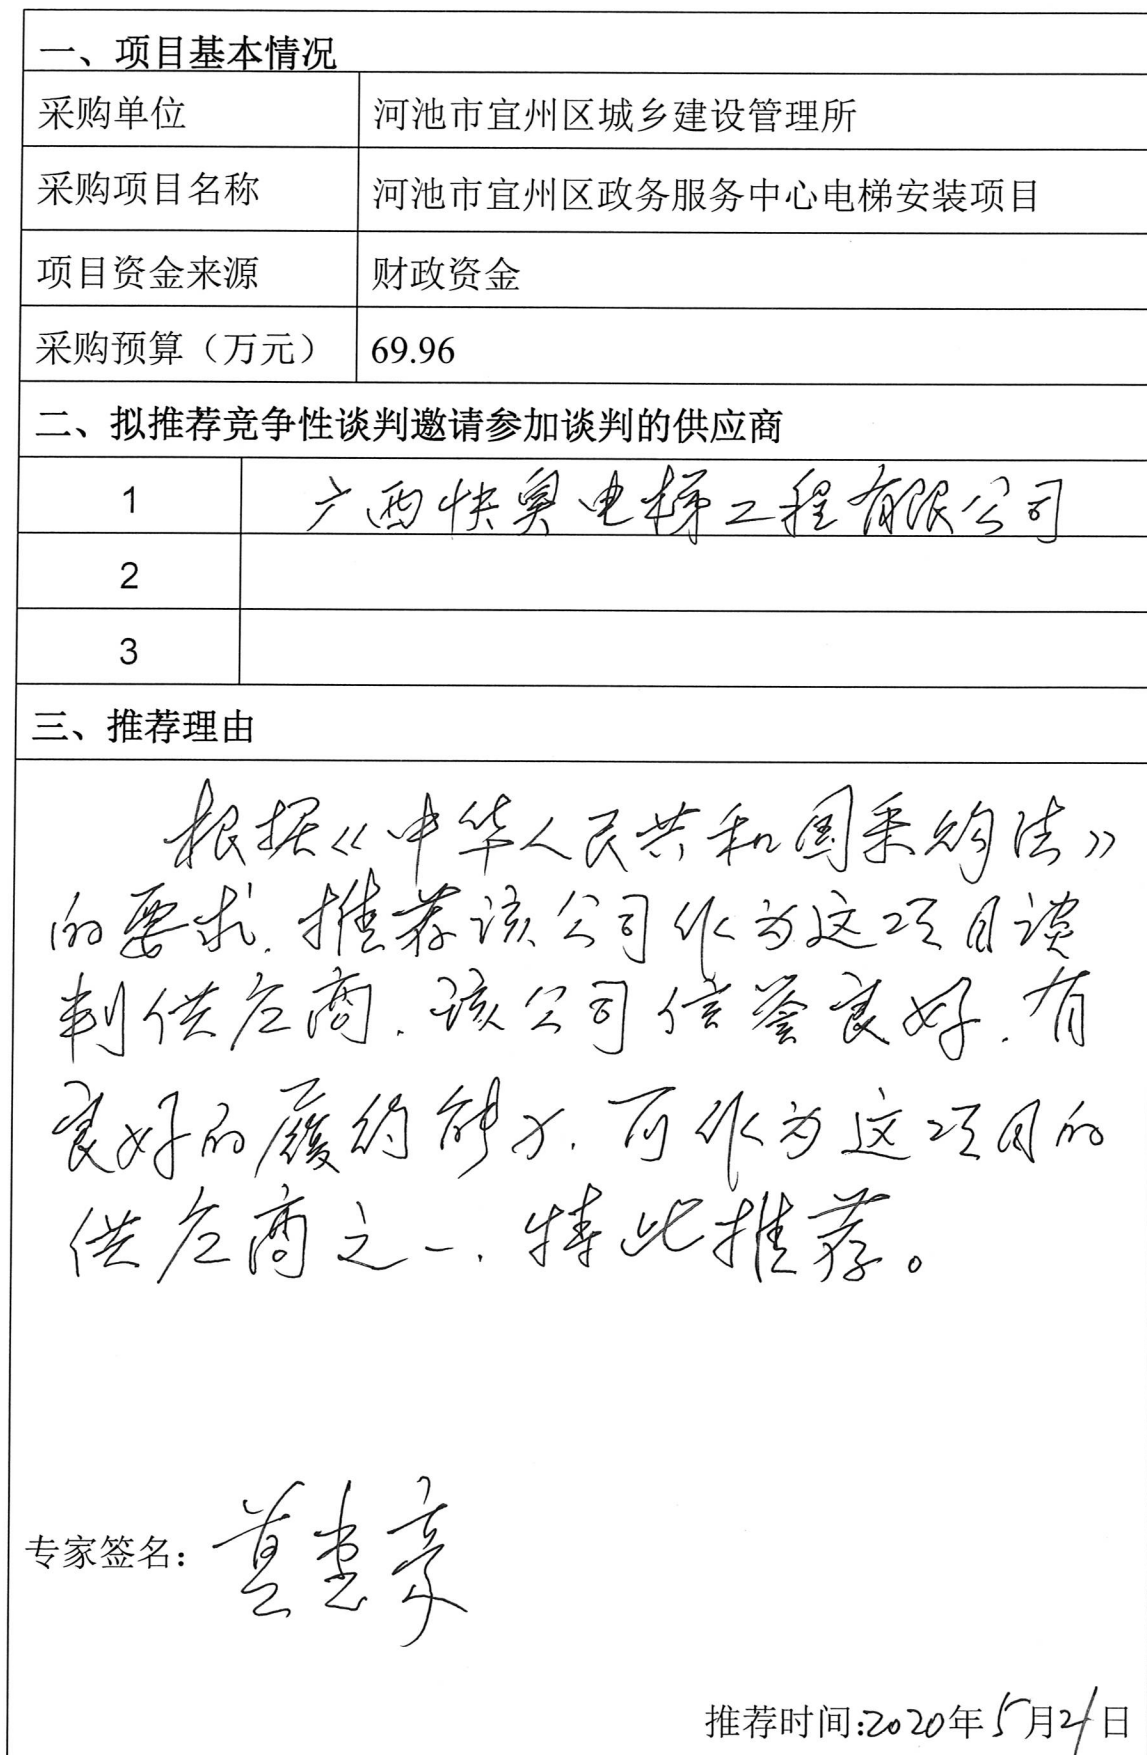 一、项目基本情况
采购单位 河池市宜州区城乡建设管理所
采购项目名称 河池市宜州区政务服务中心电梯安装项目
项目资金来源 财政资金
采购预算（万元） 69.96
二、拟推荐竞争性谈判邀请参加谈判的供应商
1 广西快奥电梯工程有限公司
2
3
三、推荐理由
根据《中华人民共和国采购法》
的要求，推荐该公司作为这项目谈
判供应商，该公司信誉良好，有
良好的履约能力，可作为这项目的
供应商之一，特此推荐。
专家签名：
推荐时间:2020年5月21日